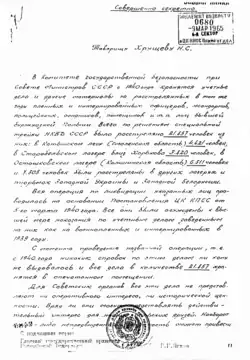 Совершенно секретно
0680
9 МАР 1965
Товарищу Хрущеву Н.С.
В Комитете государственной безопасности при
Совете Министров СССР с 1940 года хранятся учетные
дела и другие материалы на расстрелянных в том же
году пленных и интернированных офицеров, жандармов,
полицейских, осадников, помещиков и т.п. лиц бывшей
буржуазной Польши. Всего по решениям специальной
тройки НКВД СССР было расстреляно 21.857 человек, из
них: в Катынском лесу (Смоленская область) 4.421 человек,
в Старобельском лагере близ Харькова 3.820 человек, в
Осташковском лагере (Калининская область) 6.311 человек
и 7.305 человек были расстреляны в других лагерях и
тюрьмах Западной Украины и Западной Белоруссии.
Вся операция по ликвидации указанных лиц про-
водилась на основании Постановления ЦК КПСС от
5-го марта 1940 года. Все они были осуждены к выс-
шей мере наказания по учетным делам, заведенным
на них как на военнопленных и интернированных в
1939 году.
С момента проведения названной операции, т.е.
с 1940 года, никаких справок по этим делам никому
не выдавалось и все дела в количестве 21.857 хра-
нятся в опечатанном помещении.
Для Советских органов все эти дела не представ-
ляют ни оперативного интереса, ни исторической цен-
ности. Вряд ли они могут представлять действи-
тельный интерес для наших польских друзей. Наоборот,